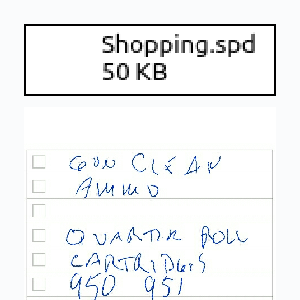 Shopping.spd
50 KB
GUN CLEAN
AMMO
QUARTER ROLL
CARTRIDGES
950 951